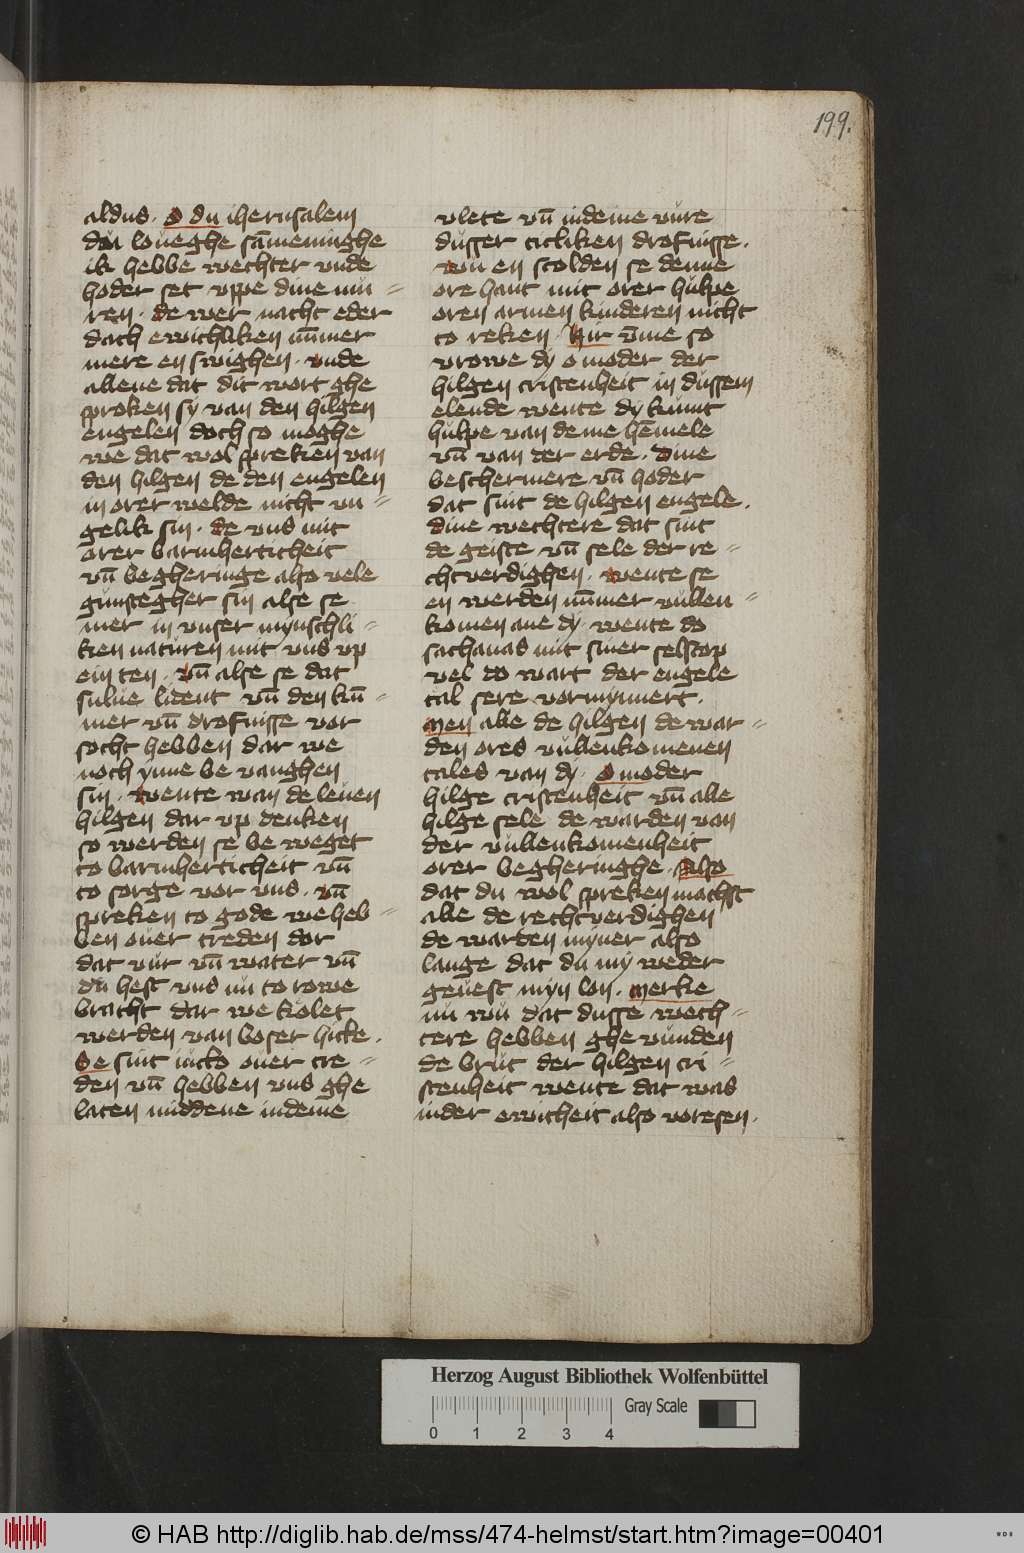 199.
aldus · O du iherusalem
du loueghe sām̄eninghe
ik hebbe wechter vnde
hoder set vppe dine mu =
ren · de wer nacht eder
dach ewichliken nūmer
mere en swighen · vnde
allene dat dit wort ghe
sproken sÿ van den hilgen
engelen doch so moghe
we dat wol spreken van
den hilgen de den engelen
in orer welde nicht vn =
gelik sin · de vns mit
orer barmherticheit
vn̄ begheringe also vele
gunstegher sin alse se
mer in vnser mynschli =
ken naturen mit vns vp
ein ten · vn̄ alse se dat
sulue lident vn̄ den kū =
mer vn̄ drofnisse vor
socht hebben dar we
noch ynne be vanghen
sin · wente wan de leuen
hilgen dar vp denken
so werden se be weget
to barmherticheit vn̄
to sorge vor vns · vn̄
spreken to gode we heb =
ben ouer treden dor
dat vůr vn̄ water vn̄
du hest vns nu to rowe
bracht dar we kolet
werden van boser hicke .
Se sint iucko ouer tre =
den vn̄ hebben vns ghe
laten middene indeme
vlete vn̄ indeme vůre
dusser titliken drofnisse .
wu en scolden se denne
ore hant mit orer hulpe
oren armen kinderen nicht
to reken · Hir vm̄e so
vrowe dÿ o moder der
hilgen cristenheit in dussem
elende wente dÿ kumt
hulpe van deme hēmele
vn̄ van der erde · dine
beschermere vn̄ hoder
dat sint de hilgen engele .
dine wechtere dat sint
de geiste vn̄ sele der re =
chtverdighen · wente se
en werden nūmer vullen =
komen ane dÿ · wente do
sathanas mit siner selscop
vel do wart der engele
tal sere vormynnert .
Men alle de hilgen de war =
den ores vullenkomenen
tales van dÿ · O moder
hilge cristenheit vn̄ alle
hilge sele de warden van
der vullenkomenheit
orer begheringhe · Also
dat du wol spreken machst
alle de rechtverdighen
de warden mÿner also
lange dat du mÿ weder
geuest mÿn lon · Merke
nu wu dat dusse wech =
tere hebben ghe vunden
de brut der hilgen cri =
stenheit wente dat was
inder ewicheit also voresen .
Herzog August Bibliothek Wolfenbüttel
Gray Scale
0 1 2 3 4
© HAB http://diglib.hab.de/mss/474-helmst/start.htm?image=00401